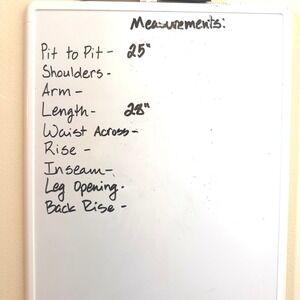 Measurements:
Pit to Pit - 25"
Shoulders -
Arm -
Length - 28"
Waist Across -
Rise -
Inseam -
Leg Opening -
Back Rise -